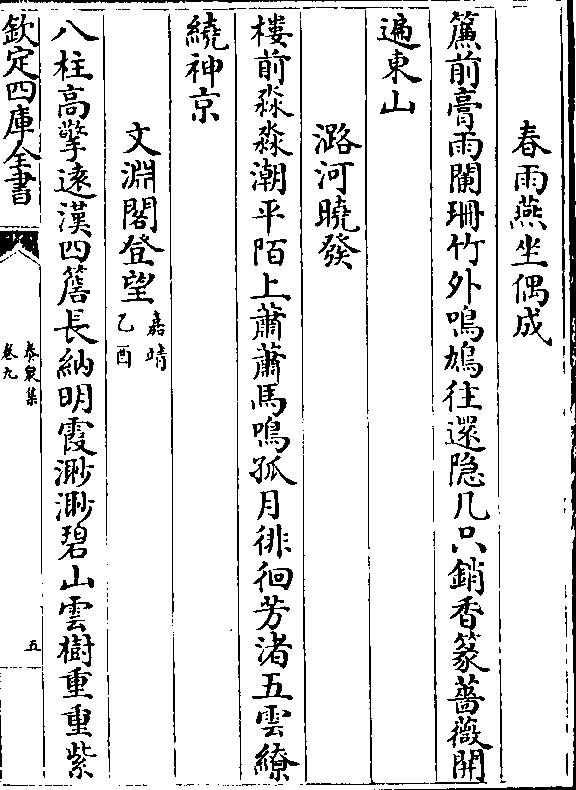 春雨燕坐偶成
簾前膏雨闌珊竹外鳴鳩往還隐几只銷香篆薔薇開
遍東山
潞河曉發
樓前淼淼潮平陌上蕭蕭馬鳴孤月徘徊芳渚五雲繚
繞神京
文淵閣登望嘉靖乙酉
八柱高擎遠漢四簷長納明霞渺渺碧山雲樹重重紫
欽定四庫全書
泰泉集
卷九
五